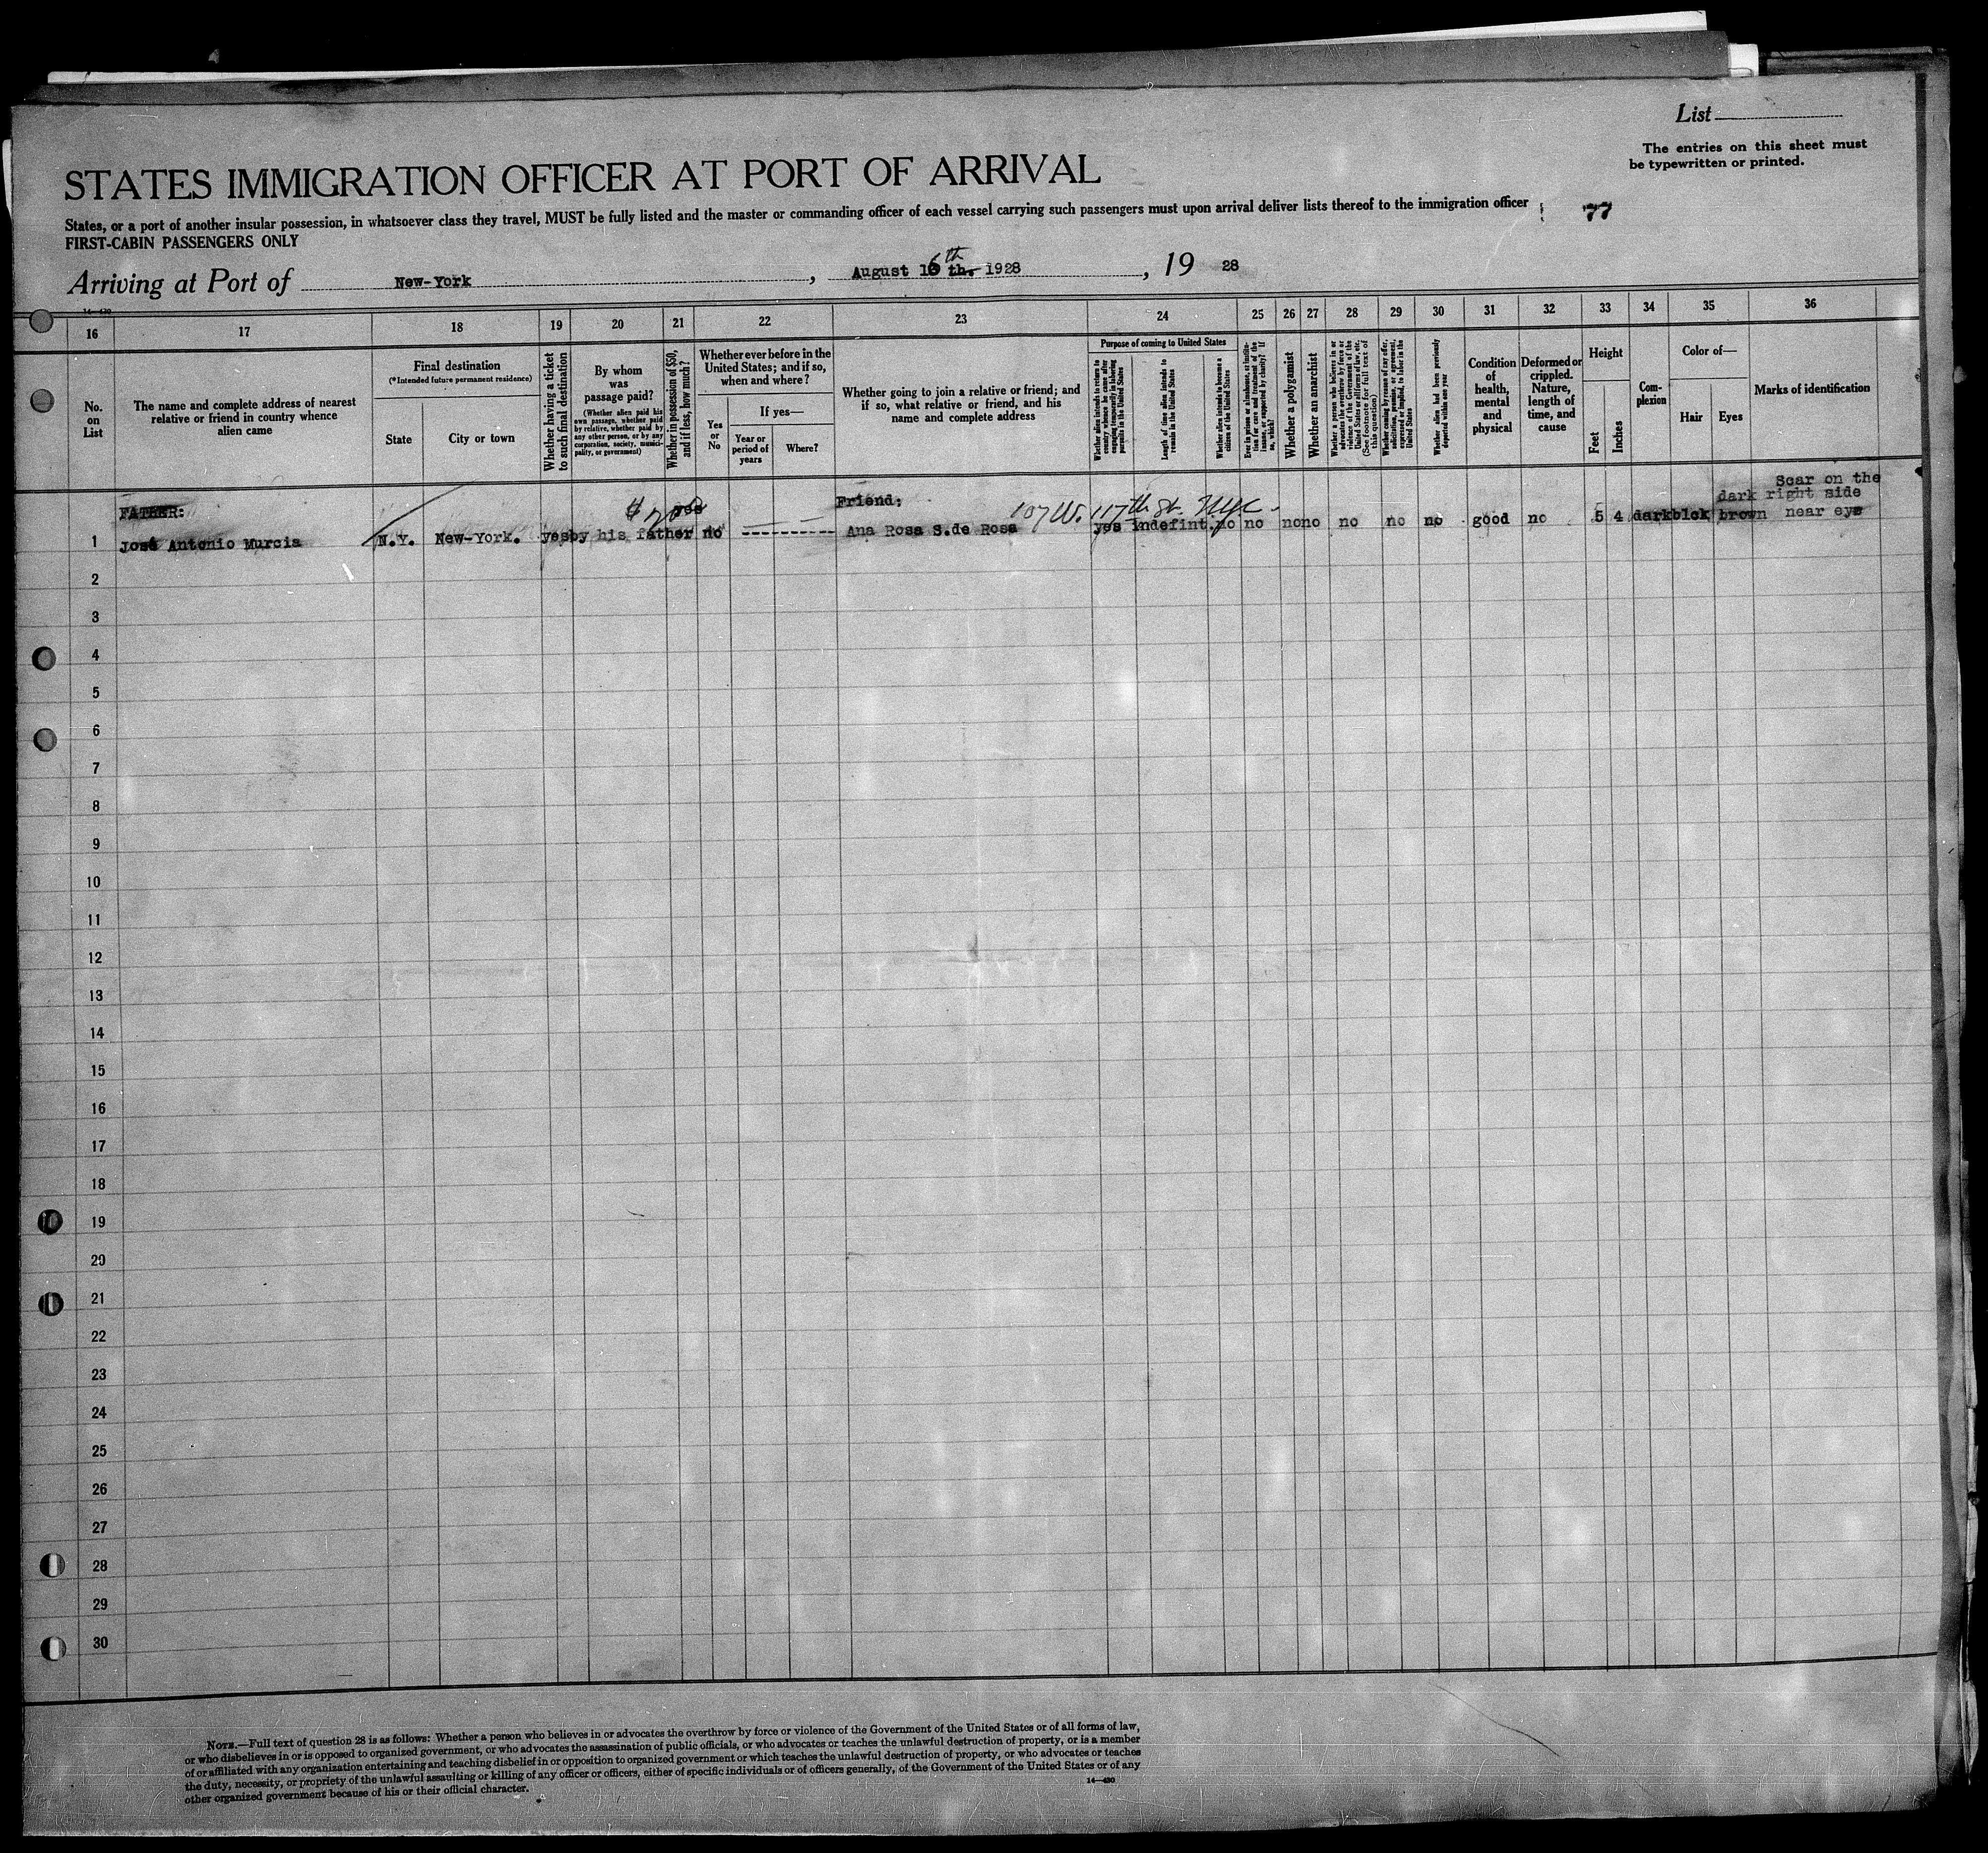 List
The entries on this sheet must
be typewritten or printed.
STATES IMMIGRATION OFFICER AT PORT OF ARRIVAL
States, or a port of another insular possession, in whatsoever class they travel, MUST be fully listed and the master or commanding officer of each vessel carrying such passengers must upon arrival deliver lists thereof to the immigration officer
77
FIRST-CABIN PASSENGERS ONLY
Arriving at Port of New-York, August 16 th. 1928, 19 28
6th
14-430
16 17 18 19 20 21 22 23 24 25 26 27 28 29 30 31 32 33 34 35 36
No.
on
List
The name and complete address of nearest
relative or friend in country whence
alien came
Final destination
(*Intended future permanent residence)
State
City or town
Whether having a ticket
to such final destination
By whom
was
passage paid?
(Whether alien paid his
own passage, whether paid
by relative, whether paid by
any other person, or by any
corporation, society, munici-
pality, or government)
Whether in possession of $50,
and if less, how much?
Whether ever before in the
United States; and if so,
when and where?
Yes
or
No
If yes—
Year or
period of
years
Where?
Whether going to join a relative or friend; and
if so, what relative or friend, and his
name and complete address
Purpose of coming to United States
Whether alien intends to return to
country whence he came after
engaging temporarily in laboring
pursuits in the United States
Length of time alien intends to
remain in the United States
Whether alien intends to become a
citizen of the United States
Ever in prison or almshouse, or institu-
tion for care and treatment of the
insane, or supported by charity? If
so, which?
Whether a polygamist
Whether an anarchist
Whether a person who believes in or
advocates the overthrow by force or
violence of the Government of the
United States or all forms of law, etc.
(See footnote for full text of
this question)
Whether coming by reason of any offer,
solicitation, promise, or agreement,
expressed or implied, to labor in the
United States
Whether alien had been previously
deported within one year
Condition
of
health,
mental
and
physical
Deformed or
crippled.
Nature,
length of
time, and
cause
Height
Feet
Inches
Com-
plexion
Color of—
Hair
Eyes
Marks of identification
FATHER:
$ 20
yes
Friend;
107 W. 117th St. NYC.
Scar on the
dark right side
1 José Antonio Murcia N.Y. New-York. yes by his father no ---------- Ana Rosa S.de Rosa yes indefint. no no no no no no no good no 5 4 dark blck brown near eye
2
3
4
5
6
7
8
9
10
11
12
13
14
15
16
17
18
19
20
21
22
23
24
25
26
27
28
29
30
NOTE.—Full text of question 28 is as follows: Whether a person who believes in or advocates the overthrow by force or violence of the Government of the United States or of all forms of law,
or who disbelieves in or is opposed to organized government, or who advocates the assassination of public officials, or who advocates or teaches the unlawful destruction of property, or is a member
of or affiliated with any organization entertaining and teaching disbelief in or opposition to organized government or which teaches the unlawful destruction of property, or who advocates or teaches
the duty, necessity, or propriety of the unlawful assaulting or killing of any officer or officers, either of specific individuals or of officers generally, of the Government of the United States or of any
other organized government because of his or their official character.
14—430